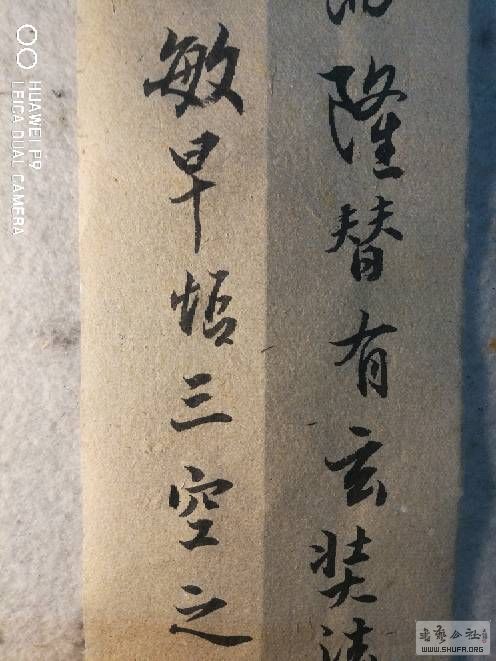 隆替有玄奘法
敏早悟三空之
HUAWEI P9
LEICA DUAL CAMERA
書藝公社
WWW.SHUFA.ORG